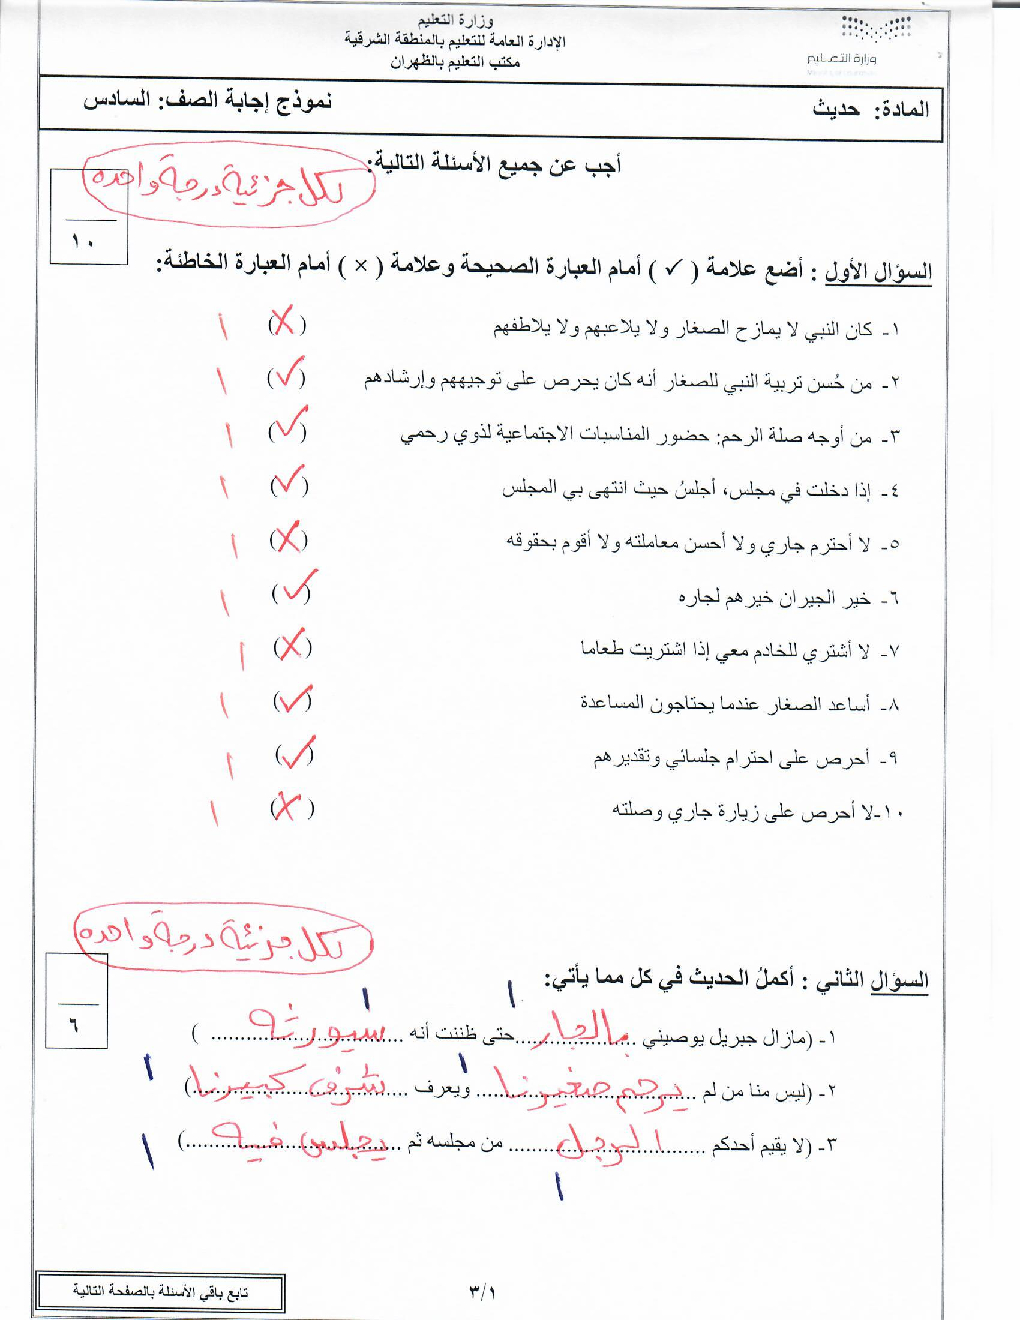 وزارة التعليم
الإدارة العامة للتعليم بالمنطقة الشرقية
مكتب التعليم بالظهران
وزارة التعليم
المادة: حديث
نموذج إجابة الصف: السادس
أجب عن جميع الأسئلة التالية:
لكل جزئية درجة واحده
١٠
السؤال الأول : أضع علامة ( ✓ ) أمام العبارة الصحيحة وعلامة ( × ) أمام العبارة الخاطئة:
١- كان النبي لا يمازح الصغار ولا يلاعبهم ولا يلاطفهم (X) ١
٢- من حُسن تربية النبي للصغار أنه كان يحرص على توجيههم وإرشادهم (✓) ١
٣- من أوجه صلة الرحم: حضور المناسبات الاجتماعية لذوي رحمي (✓) ١
٤- إذا دخلت في مجلس، أجلسُ حيث انتهى بي المجلس (✓) ١
٥- لا أحترم جاري ولا أحسن معاملته ولا أقوم بحقوقه (X) ١
٦- خير الجيران خيرهم لجاره (✓) ١
٧- لا أشتري للخادم معي إذا اشتريت طعاما (X) ١
٨- أساعد الصغار عندما يحتاجون المساعدة (✓) ١
٩- أحرص على احترام جلسائي وتقديرهم (✓) ١
١٠-لا أحرص على زيارة جاري وصلته (X) ١
لكل جزئية درجة واحده
٦
السؤال الثاني : أكملُ الحديث في كل مما يأتي:
١ ١
١- (مازال جبريل يوصيني بالجار حتى ظننت أنه سيورثه )
١ ١
٢- (ليس منا من لم يرحم صغيرنا ويعرف شرف كبيرنا)
٣- (لا يقيم أحدكم الرجل من مجلسه ثم يجلس فيه) ١
١
٣/١
تابع باقي الأسئلة بالصفحة التالية